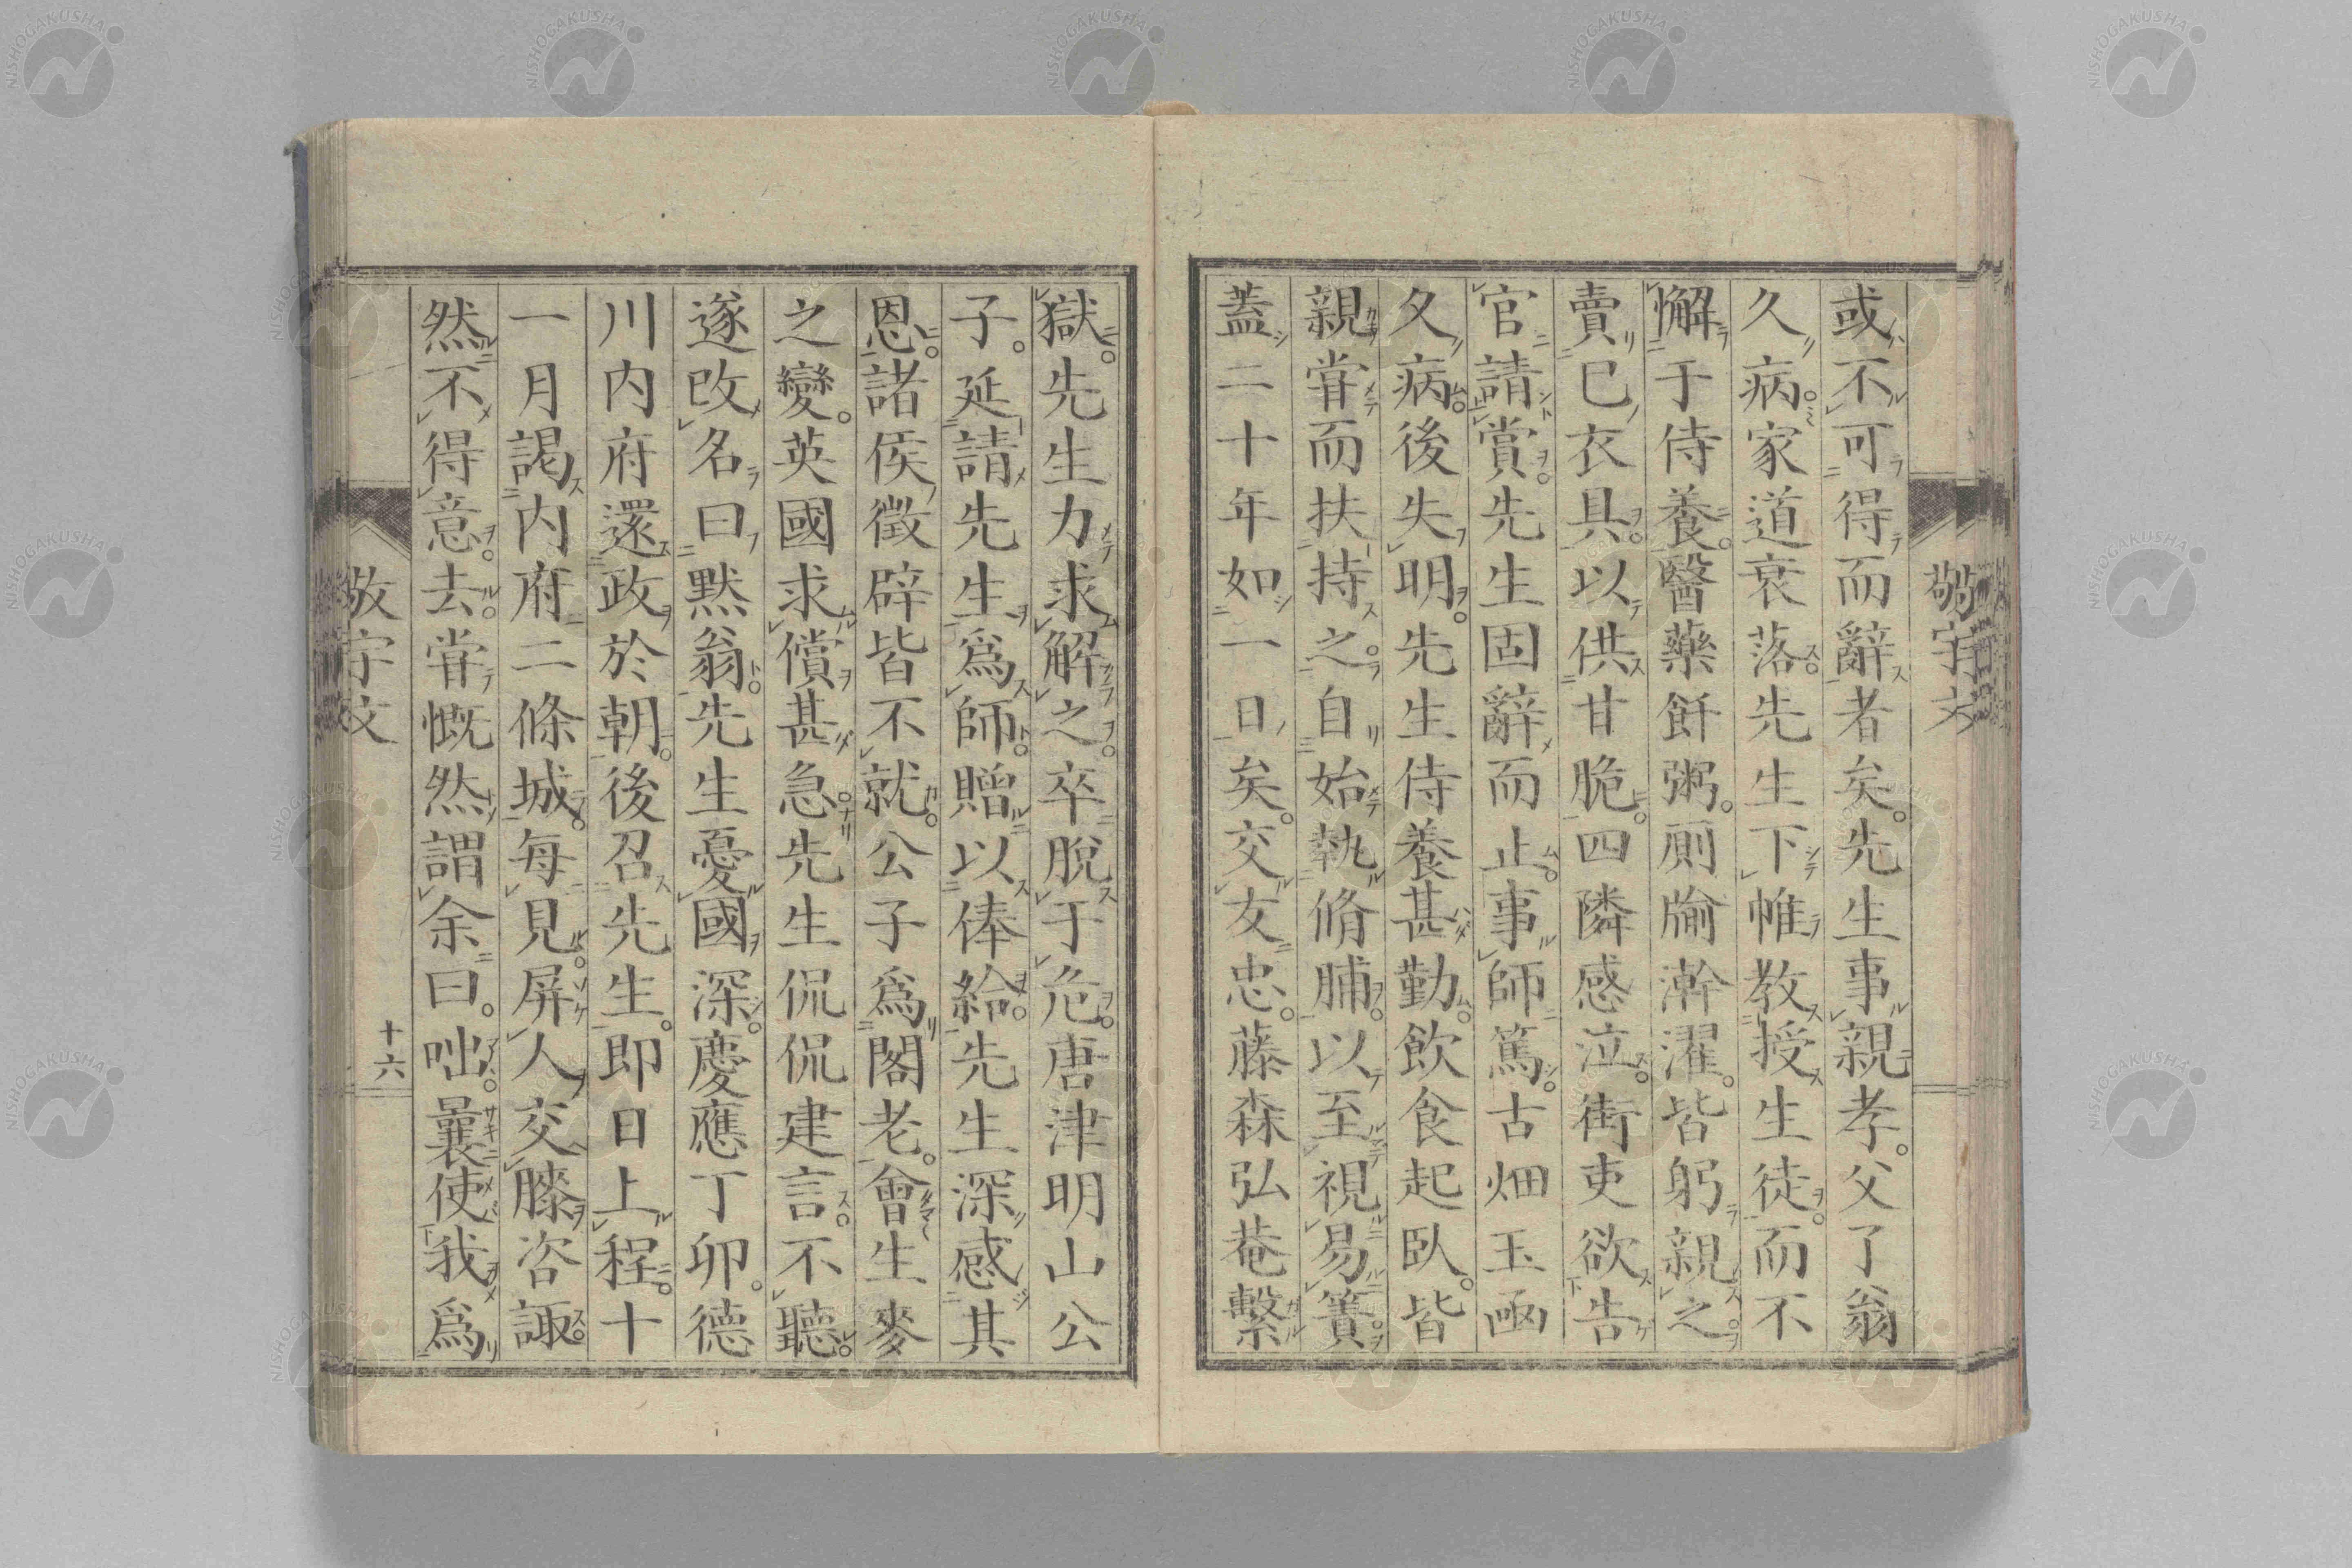 或不可得而辭者矣。先生事親孝。父了翁
久病。家道衰落。先生下帷教授生徒。而不
懈于侍養。醫藥飦粥。廁牏澣濯。皆躬親之。
賣已衣具。以供甘脆。四隣感泣。街吏欲告
官請賞。先生固辭而止。事師篤。古畑玉函
久病。後失明。先生侍養甚勤。飲食起臥。皆
親甞而扶持之。自始執脩脯。以至視易簀。
蓋二十年如一日矣。交友忠。藤森弘菴繫
獄。先生力求解之。卒脫于危。唐津明山公
子。延請先生爲師。贈以俸給。先生深感其
恩。諸侯徵辟皆不就。公子爲閣老。會生麥
之變。英國求償甚急。先生侃侃建言。不聽。
遂改名曰默翁。先生憂國深。慶應丁卯。德
川內府還政於朝。後召先生。即日上程。十
一月謁內府二條城。每見。屏人交膝咨諏。
然不得意。去。甞慨然謂余曰。咄。曩使我爲
敬宇文
十六
敬宇文
NISHOGAKUSHA